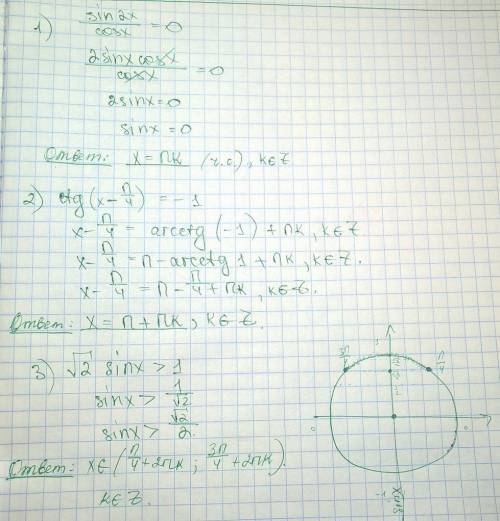 1) sin2x/cosx = 0
2sinx cosx/cosx = 0
2sinx = 0
sinx = 0
Ответ: x = πk (ч.с.), k∈Z
2) ctg(x - π/4) = -1
x - π/4 = arcctg(-1) + πk, k∈Z
x - π/4 = π - arcctg 1 + πk, k∈Z.
x - π/4 = π - π/4 + πk, k∈Z.
Ответ: x = π + πk, k∈Z.
3) √2 sinx > 1
sinx > 1/√2
sinx > √2/2
Ответ: x∈(π/4 + 2πk; 3π/4 + 2πk).
k∈Z.
3π/4
π/4
1
0
-1
sinx